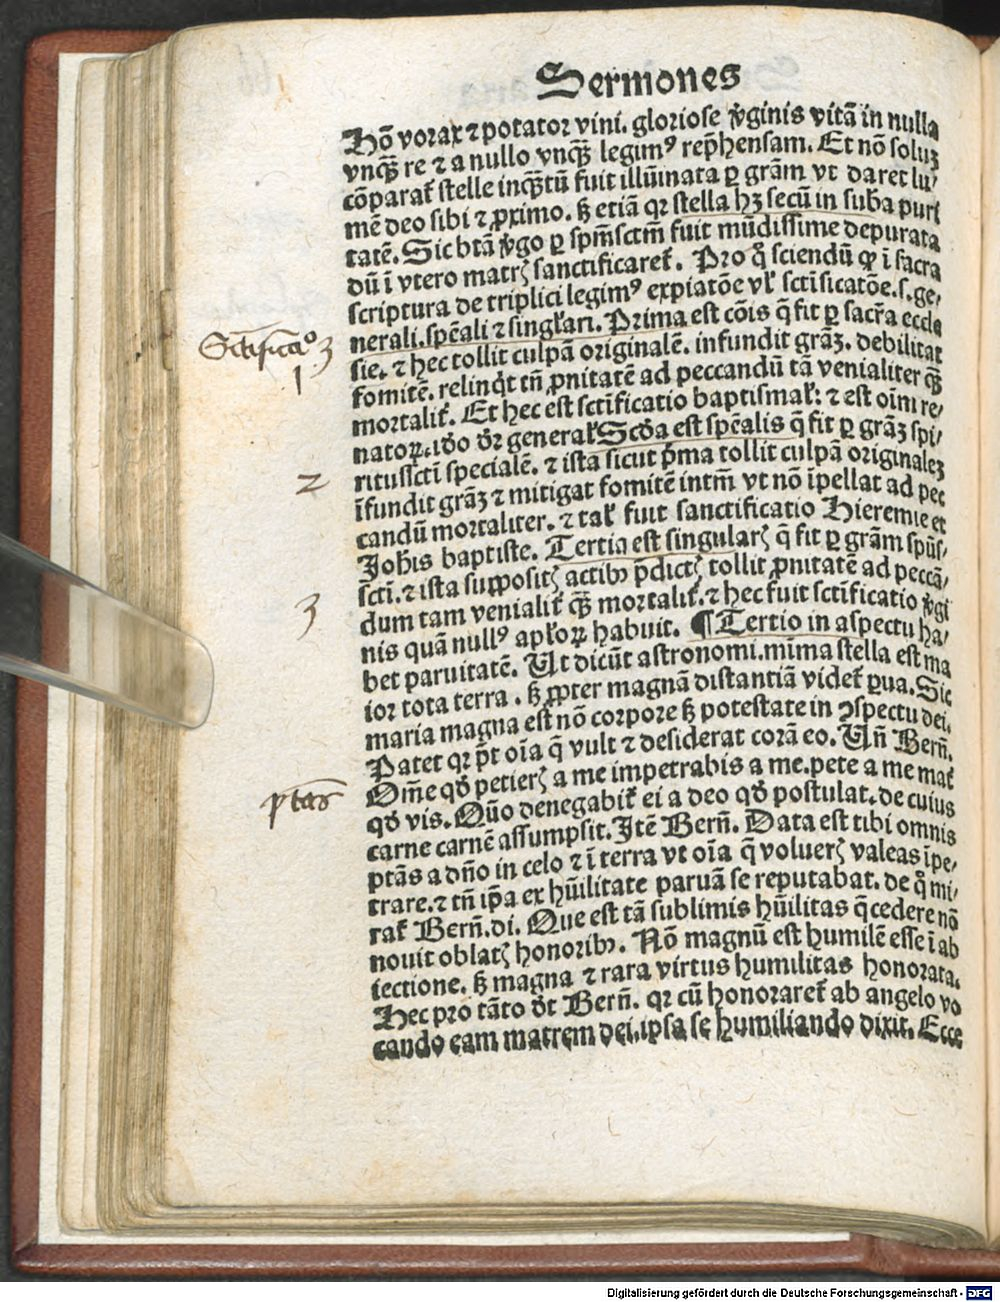 Sermones
Hō vorax ⁊ potator vini. gloriose v̄ginis vitā in nulla
vnqȝ re ⁊ a nullo vnqȝ legimꝰ rep̄hensam. Et nō soluȝ
cōparat̄ stelle inqȝtū fuit illūinata ꝑ grām vt daret lu⸗
mē deo sibi ⁊ ꝓximo. sȝ etiā qꝛ stella hȝ secū in suba puri
tatē. Sic btā v̄go ꝑ spm̄sctm̄ fuit mūdissime depurata
dū ī vtero matrꝭ sanctificaret̄. Pro qͦ sciendū ꝙ ī sacra
scriptura de triplici legimꝰ expiatōe vl̓ sctīficatōe.s.ge⸗
nerali.spēali ⁊ singl̓ari. Prima est cōis q̄ fit ꝑ sacr̄a eccle
Sctīficatio 3
sie. ⁊ hec tollit culpā originalē. infundit grāȝ. debilitat
1
fomitē. relinq̇t tn̄ ꝓnitatē ad peccandū tā venialiter qȝ
mortalit̄. Et hec est sctīficatio baptismal̓: ⁊ est oīm re⸗
natoꝝ.iō dr̄ general̓ Scd̓a est spēalis q̄ fit ꝑ grāȝ spi⸗
2
ritussctī specialē. ⁊ ista sicut p̄ma tollit culpā originaleȝ
īfundit grāȝ ⁊ mitigat fomitē intm̄ vt nō īpellat ad pec
candū mortaliter. ⁊ tal̓ fuit sanctificatio Hieremie et
Joh̄is baptiste. Tertia est singularꝭ q̄ fit ꝑ grām spūs⸗
sctī. ⁊ ista suppositꝭ actibꝫ p̄dictꝭ tollit ꝓnitatē ad peccā⸗
3
dum tam venialit̄ qȝ mortalit̄. ⁊ hec fuit sctīficatio v̄gi
nis quā nullꝰ apl̓oꝝ habuit. ¶ Tertio in aspectu ha⸗
bet paruitatē. Ut dicūt astronomi.mīma stella est ma
ior tota terra. sȝ ꝓpter magnā distantiā videt̄ ꝑua. Sic
maria magna est nō corpore sȝ potestate in ꝯspectu dei.
Patet qꝛ p̄t oīa q̄ vult ⁊ desiderat corā eo. Un̄ Bern̄.
Om̄e qd̓ petierꝭ a me impetrabis a me.pete a me mat̄
ptas
qd̓ vis. Quō denegabit̄ ei a deo qd̓ postulat.de cuius
carne carnē assumpsit. Itē Bern̄. Data est tibi omnis
ptās a dn̄o in celo ⁊ ī terra vt oīa q̄ voluerꝭ valeas īpe⸗
trare. ⁊ tn̄ ip̄a ex hūilitate paruā se reputabat. de qͦ mi⸗
rat̄ Bern̄.di. Que est tā sublimis hūilitas q̄ cedere nō
nouit oblatꝭ honoribꝫ. Nō magnū est humilē esse ī ab
iectione. sȝ magna ⁊ rara virtus humilitas honorata.
Hec pro tāto dt̄ Bern̄. qꝛ cū honoraret̄ ab angelo vo
cando eam matrem dei.ipsa se humiliando dixit. Ecce
Digitalisierung gefördert durch die Deutsche Forschungsgemeinschaft - DFG